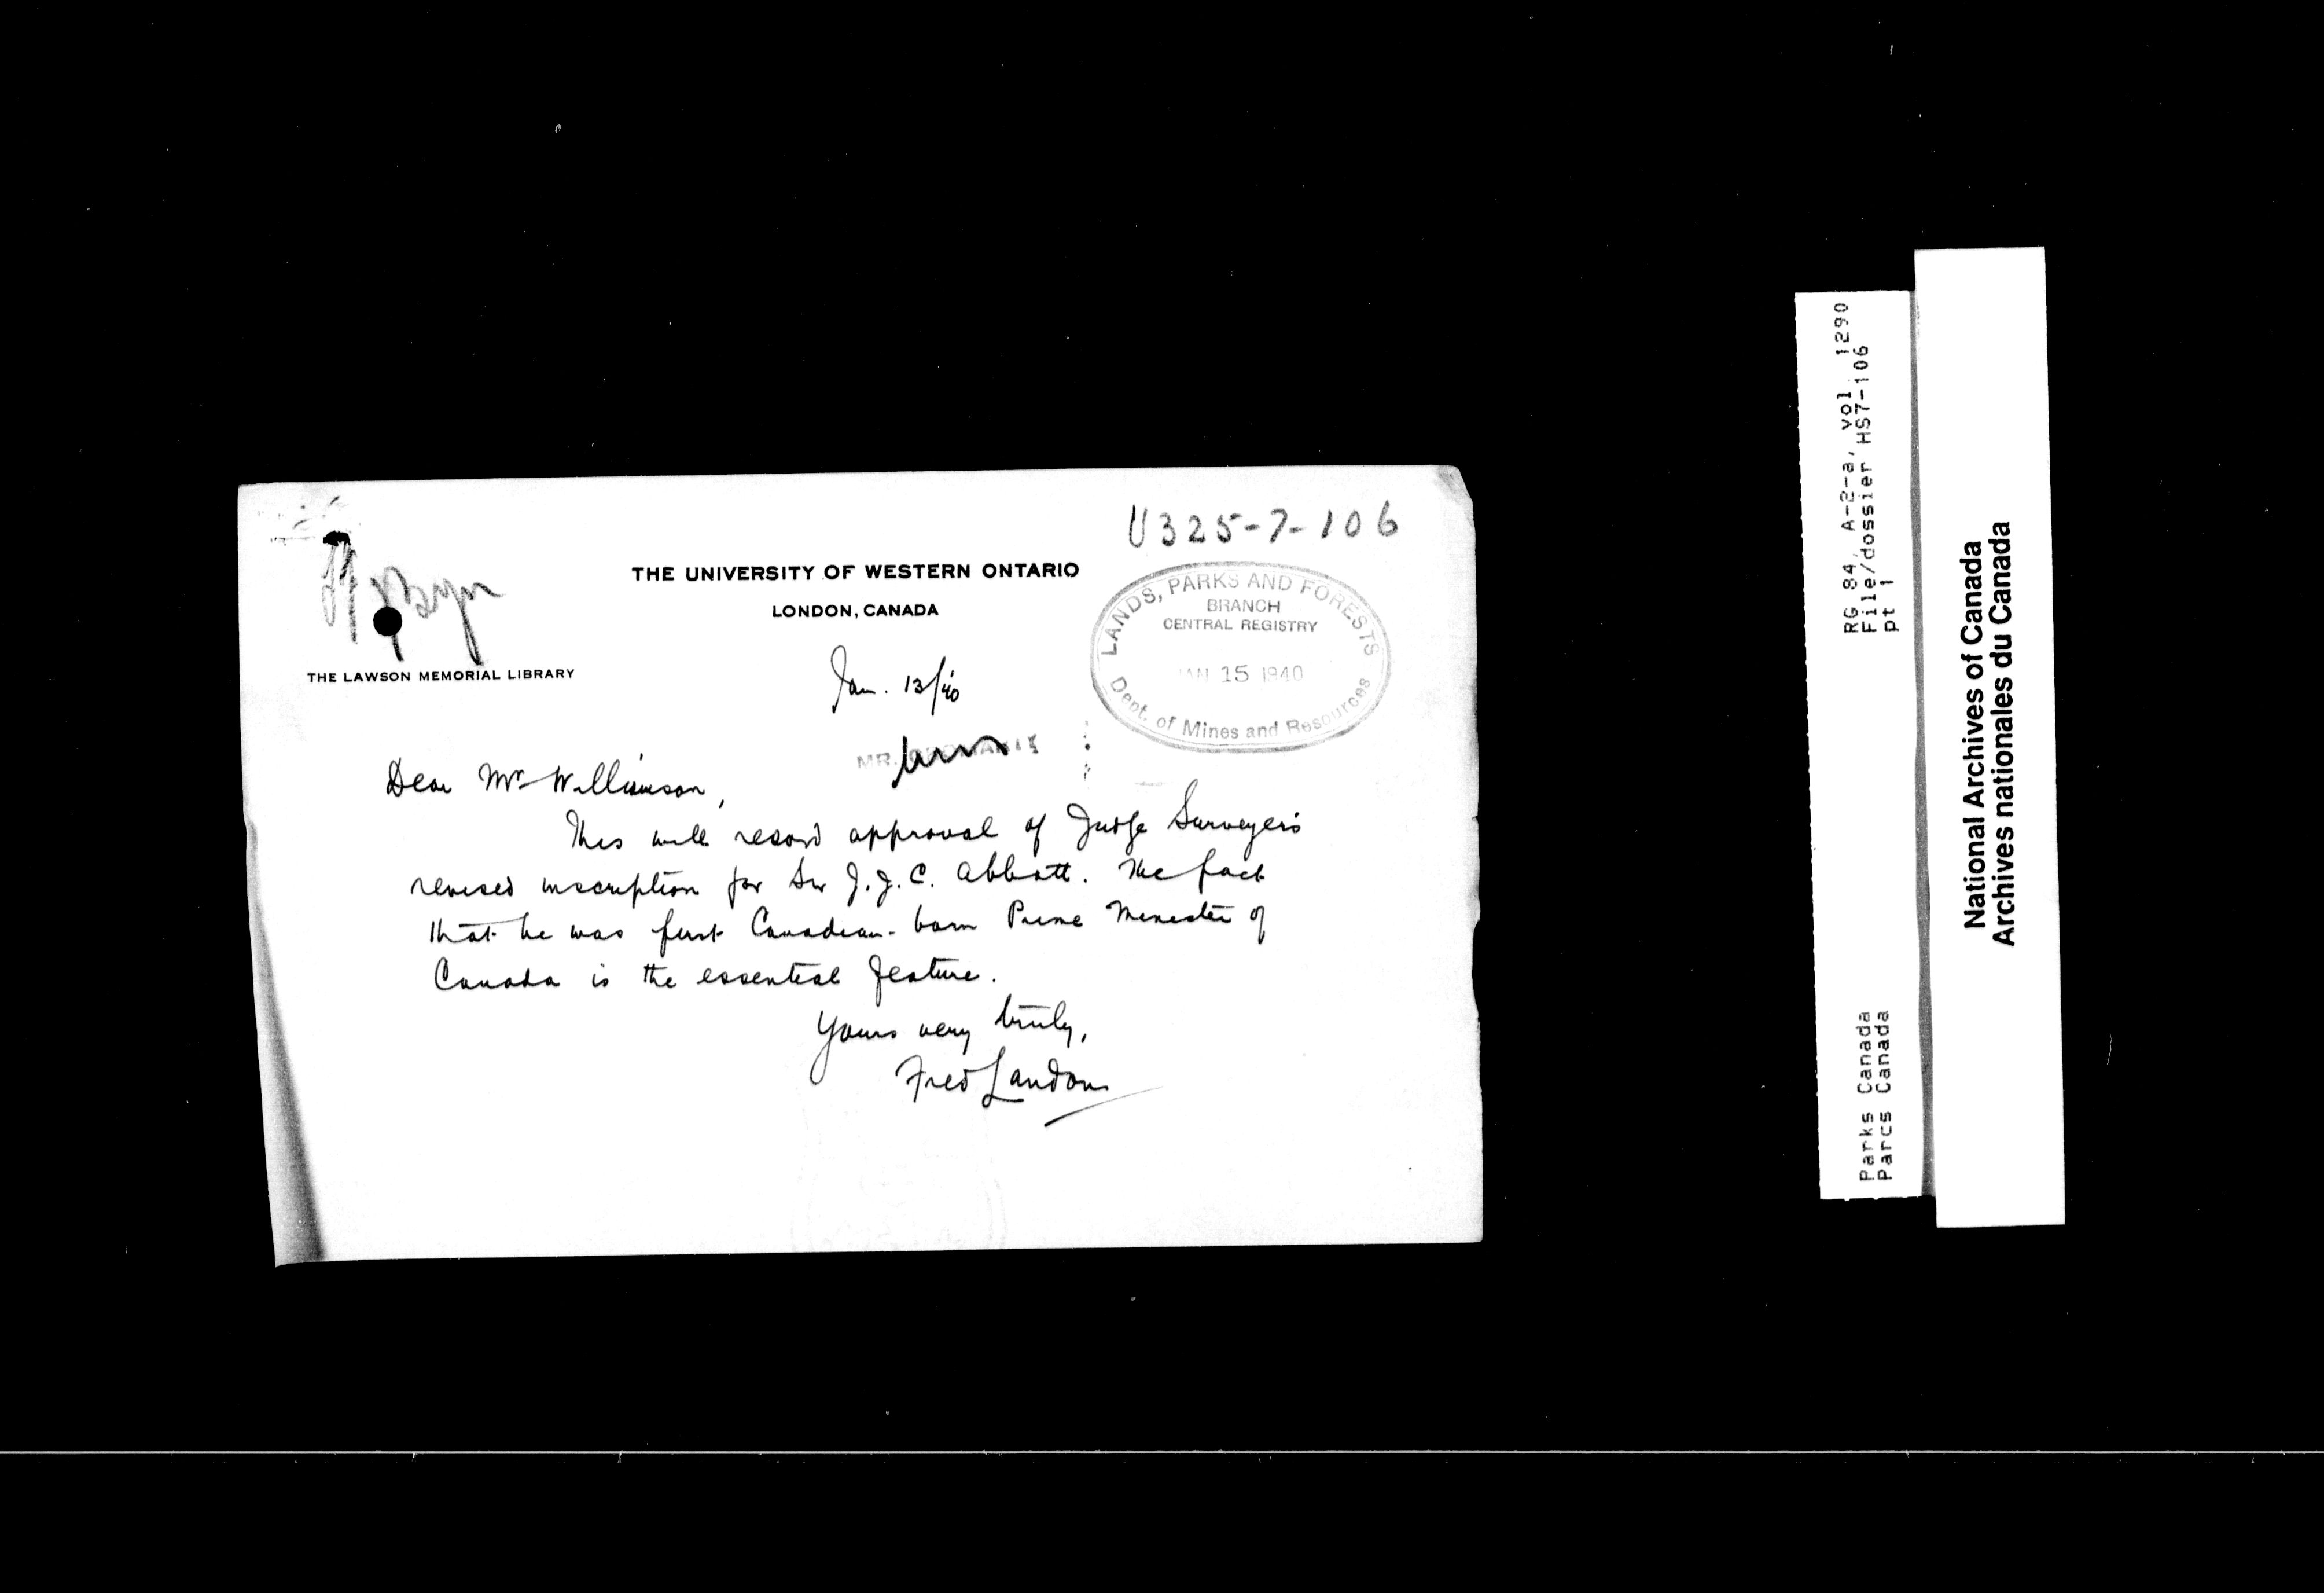 U325-7-106
THE UNIVERSITY OF WESTERN ONTARIO
LONDON, CANADA
THE LAWSON MEMORIAL LIBRARY
LANDS, PARKS AND FORESTS
BRANCH
CENTRAL REGISTRY
JAN 15 1940
Dept. of Mines and Resources
Jan. 13/40
MR.
Dear Mr Williamson,
This will record approval of Judge Surveyer's
revised inscription for Sir J.J.C. Abbott. The fact
that he was first Canadian-born Prime Minister of
Canada is the essential feature.
Yours very truly,
Fred Landon
RG 84, A-2-a, vol. 1290
File/dossier HS7-106
pt 1
Parks Canada
Parcs Canada
National Archives of Canada
Archives nationales du Canada